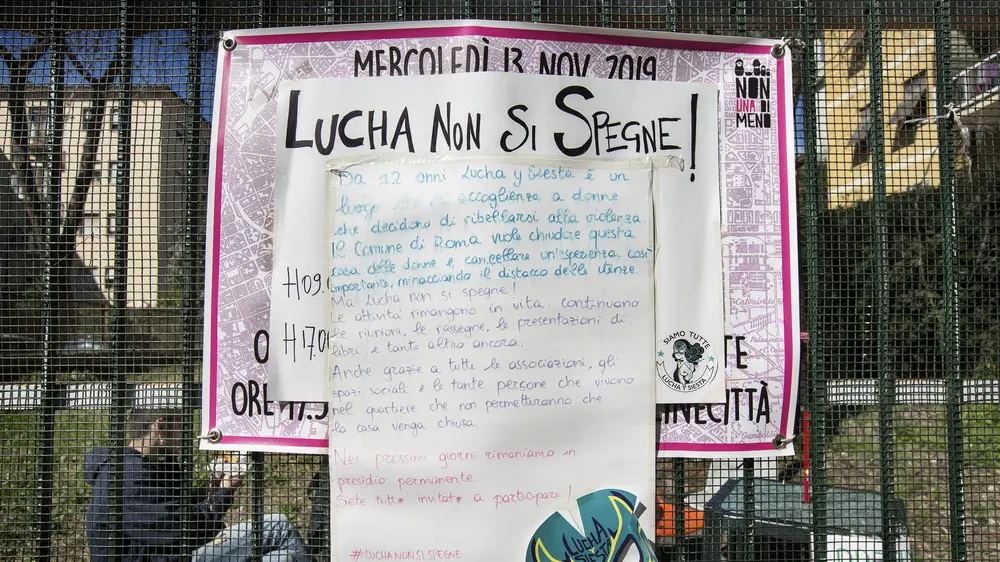 MERCOLEDÌ 13 NOV 2019
NON
UNA DI
MENO
LUCHA NON SI SPEGNE!
Da 12 anni Lucha y Siesta è un
accoglienza a donne
che decidono di ribellarsi alla violenza.
Il Comune di Roma vuole chiudere questa
casa delle donne e cancellare un'esperienza così
importante, minacciando il distacco delle utenze.
Ma Lucha non si spegne!
Le attività rimangono in vita: continuano
le riunioni, le rassegne, le presentazioni di
libri e tanto altro ancora.
Anche grazie a tutte le associazioni, gli
spazi sociali e le tante persone che vivono
nel quartiere che non permetteranno che
la casa venga chiusa.
Nei prossimi giorni rimaniamo in
presidio permanente.
Siete tutt* invitat* a partecipare!
#LUCHANONSISPEGNE
H09.
H17.0
ORE 17.3
SIAMO TUTTE
LUCHA Y SIESTA
LUCHA
SIESTA